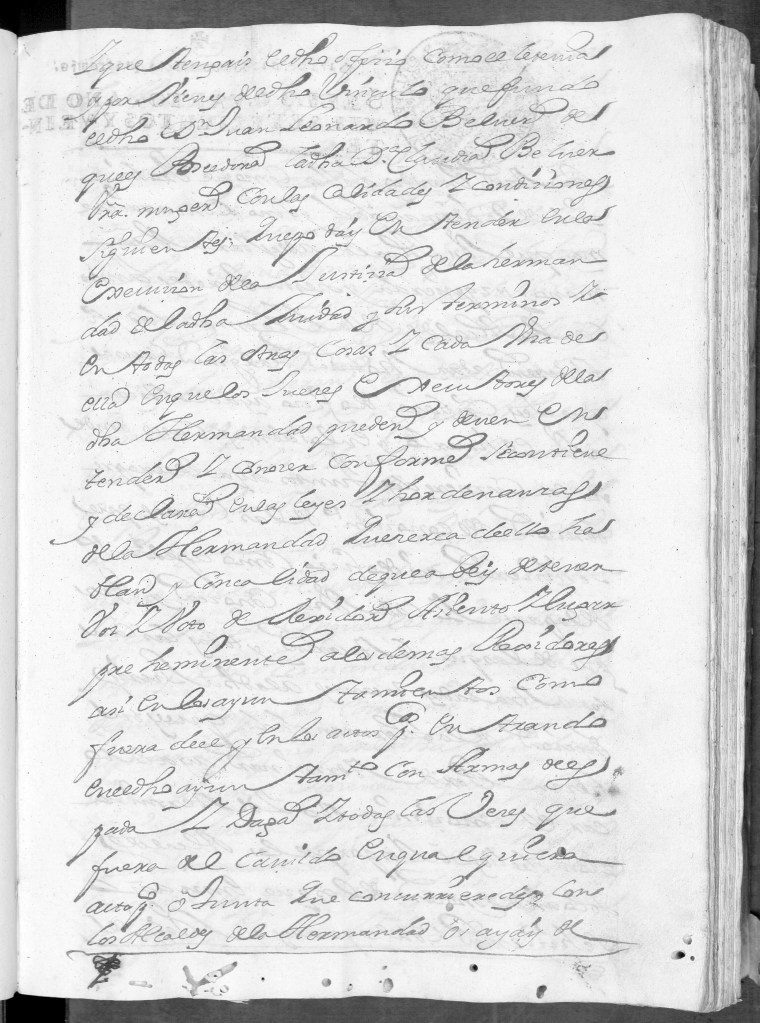 Y que tengais el dho oficio como el lo tenia
y por vienes del dho Vinculo que fundo
el dho Dn Juan Leonardo Belver de
que es Poseedora la dha Da Claudia Belver
vra. muger Con las Calidades Y condiciones
siguientes, que podais Entender en la
Execucion de la Justicia de la herman
dad de la dha Ciudad y sus terminos Y
en todas las otras Cosas Y cada Una de
ella En que los Jueces Executores de la
dha Hermandad pueden y deven En
tender Y conocer Conforme Se contiene
y declara en las leyes Y hordenanzas
de la Hermandad que cerca de ello ha
blan y Con calidad de que a beis de tener
Vos Y Voto de Rexidor Asiento Y lugar
preheminente a los demas Rexidores
asi en los ayuntamientos Como
fuera de el y en los actos pcos. Entrando
en el dho ayuntamto Con Armas de es
pada Y Daga Y todas las Veces que
fuera del Cavildo En qualquiera
acto pco o Junta que concurrieredes Con
los Alcaldes de la Hermandad os ayais de